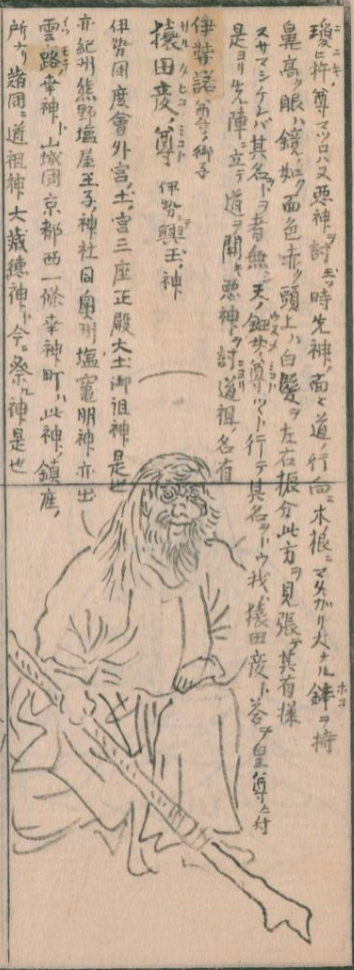 瓊ニ杵ノ尊マツロハヌ悪神ヲ討玉フ時先神ノ面ヲ道ノ行向ニ木根ニマタガリ大ナル鉾ヲ持
鼻高ク眼ハ鏡ノ如ク面色赤ク頭上ハ白髪ヲ左右振分此方ヲ見張テ其有様
スサマシケレバ其名ヲトフ者無シ天ノ鈿女ノ尊行テ其名ヲトウ我ハ猿田彦ト答フ皇尊ニ付
是ヨリ先陣ニ立テ道ヲ開キ悪神ヲ討道祖ノ名有
伊弉諾ノ尊ノ御子
猿田彦ノ尊 伊勢ノ興玉ノ神
伊勢国度會外宮ノ土ノ宮三座正殿大土御祖神是也
亦紀州熊野塩屋王子神社同奥州塩竈明神亦出
雲路幸神ト山城国京都西一條幸神町ハ此神ノ鎮座ノ
所ナリ諸国ニ道祖神大歳徳神ト今ニ祭ル神是也